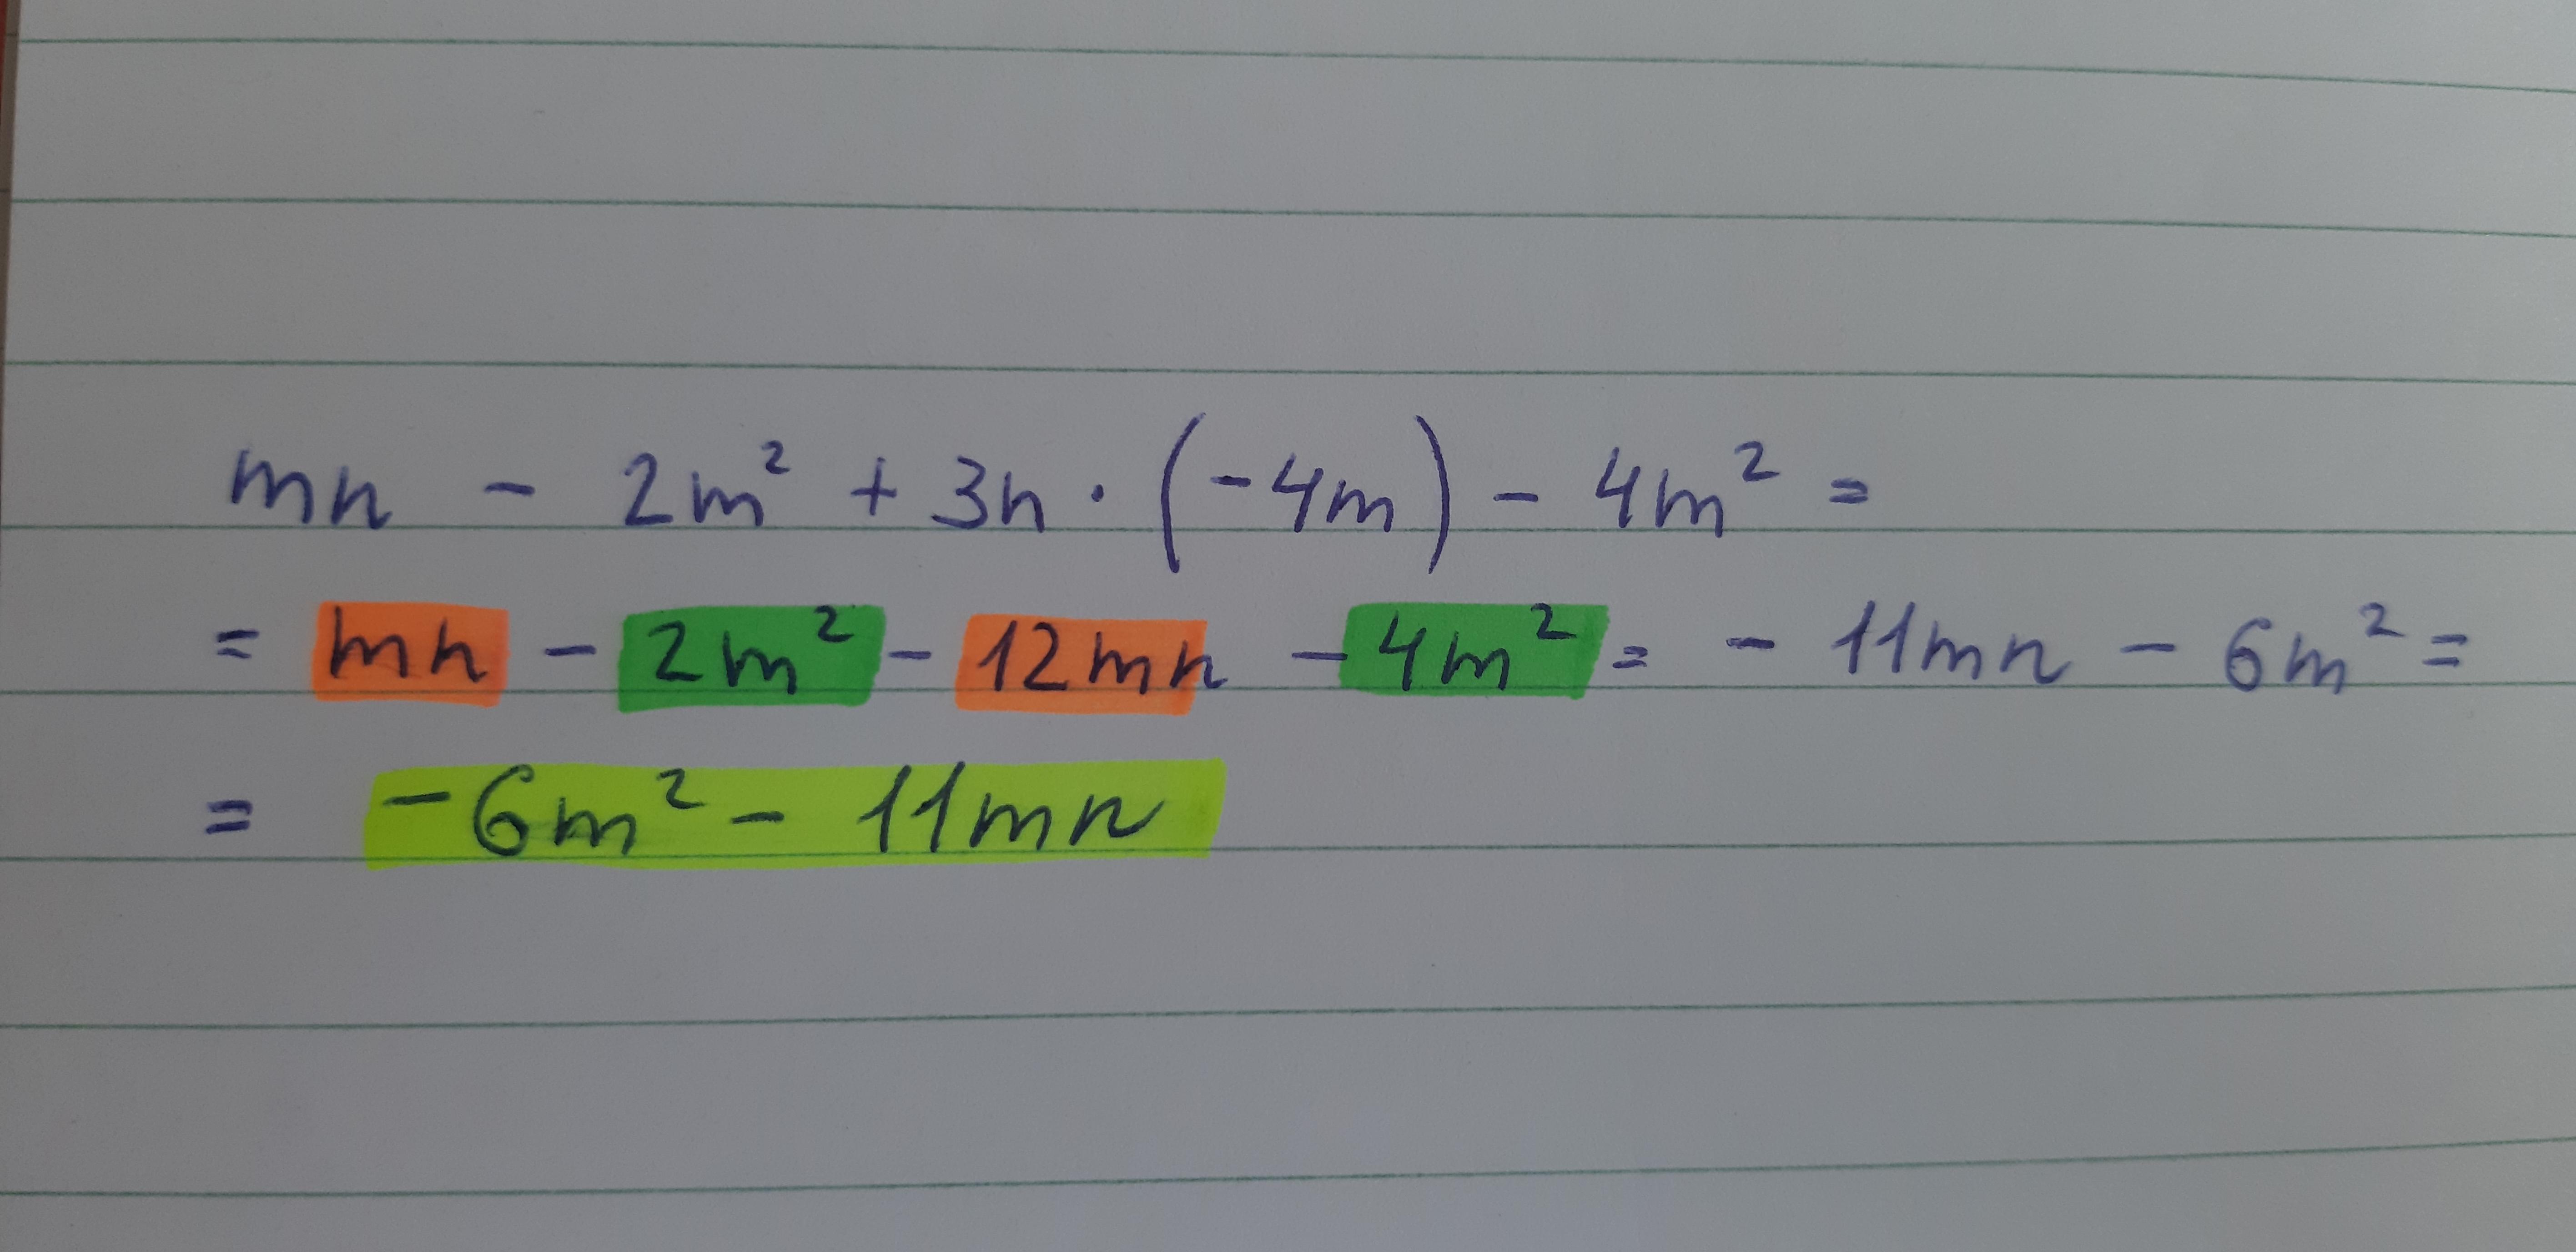 mn - 2m² + 3n · (-4m) - 4m² =
= mn - 2m² - 12mn - 4m² = - 11mn - 6m² =
= -6m² - 11mn